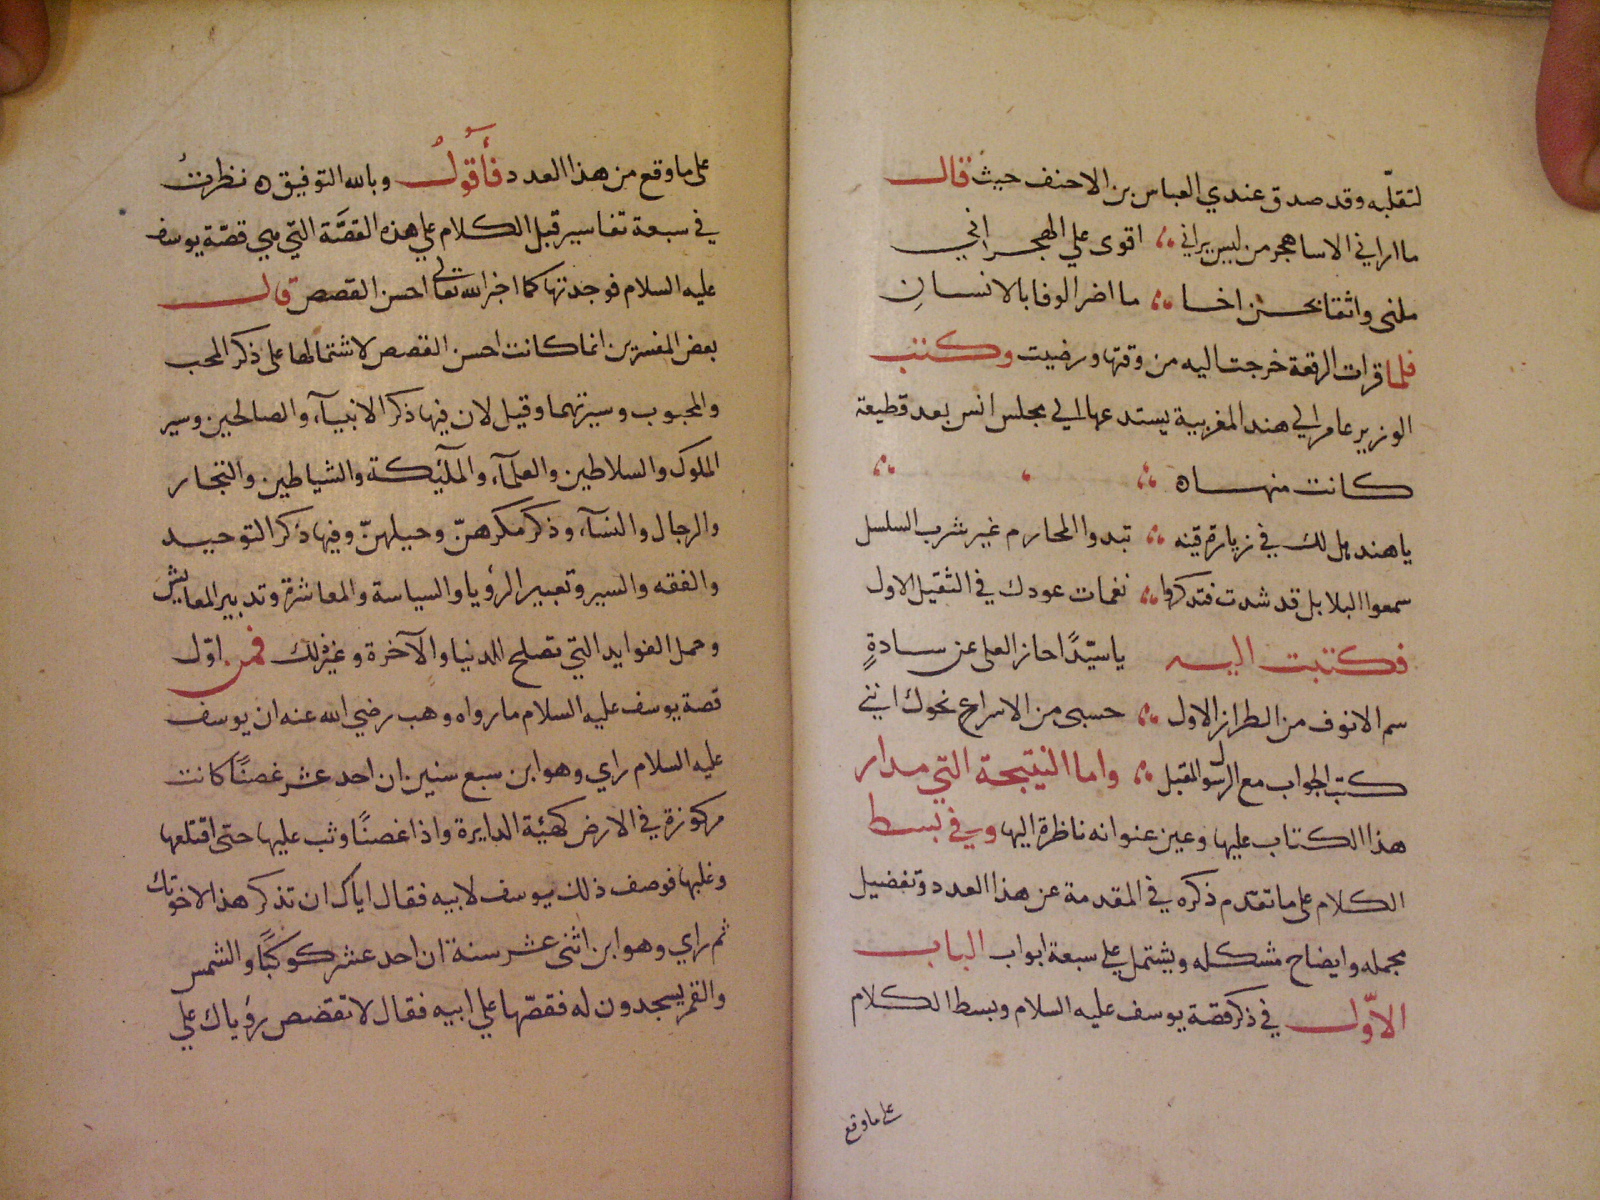 لتقلّبه وقد صدق عندي العباس بن الاحنف حيث قال
ما اراني الا ساهجر من ليس يراني اقوى علي الهجران
ملني واثقا بحسن اخا ما اضر الوفا بالانسانِ
فلما قرات الرقعة خرجت اليه من وقتها ورضيت وكتب
الوزير عامر الي هند المغربية يستدعها الي مجلس انس بعد قطيعة
كانت منها ه
يا هند هل لك في زيارة فتية تبدوا المحارم غير شرب السلسل
سمعوا البلابل قد شدت فتذكروا نغمات عودك في الثقيل الاول
فكتبت اليه يا سيّدًا حاز العلى عن سادةٍ
سم الانوف من الطراز الاول حسبي من الاسراع نحوك انني
كنت الجواب مع الرسول المقبل واما النتيجة التي مدار
هذا الكتاب عليها وعين عنوانه ناظرة اليها وفي بسط
الكلام على ما تقدم ذكره في المقدمة عن هذا العدد وتفضيل
مجمله وايضاح مشكله ويشتمل علي سبعة ابواب الباب
الاوّل في ذكر قصة يوسف عليه السلام وبسط الكلام
على ما وقع
على ما وقع من هذا العدد فأقول وبالله التوفيق ه نظرتُ
في سبعة تفاسير قبل الكلام علي هذه القصَّة التي هي قصّة يوسف
عليه السلام فوجدتها كما اخبر الله تعالى احسن القصص قال
بعض المفسرين انما كانت احسن القصص لاشتمالها على ذكر المحب
والمحبوب وسيرتهما وقيل لان فيها ذكر الانبيآء والصالحين وسير
الملوك والسلاطين والعلمآء والملآئكة والشياطين والتجار
والرجال والنسآء وذكر مكرهنّ وحيلهنّ وفيها ذكر التوحيد
والفقه والسير وتعبير الرؤيا والسياسة والمعاشرة وتدبير المعايش
وجمل الفوايد التي تصلح للدنيا والآخرة وغير ذلك فمن اوّل
قصة يوسف عليه السلام ما رواه وهب رضي الله عنه ان يوسف
عليه السلام راي وهو ابن سبع سنين ان احد عشر غصنًا كانت
مركوزة في الارض كهيئة الدايرة واذا غصنًا وثب عليها حتى اقتلعها
وغلبها فوصف ذلك يوسف لابيه فقال اياك ان تذكر هذا لاخوتك
ثم راي وهو ابن اثنى عشر سنة ان احد عشر كوكبًا والشمس
والقمر يسجدون له فقصّها علي ابيه فقال لا تقصص رؤياك علي